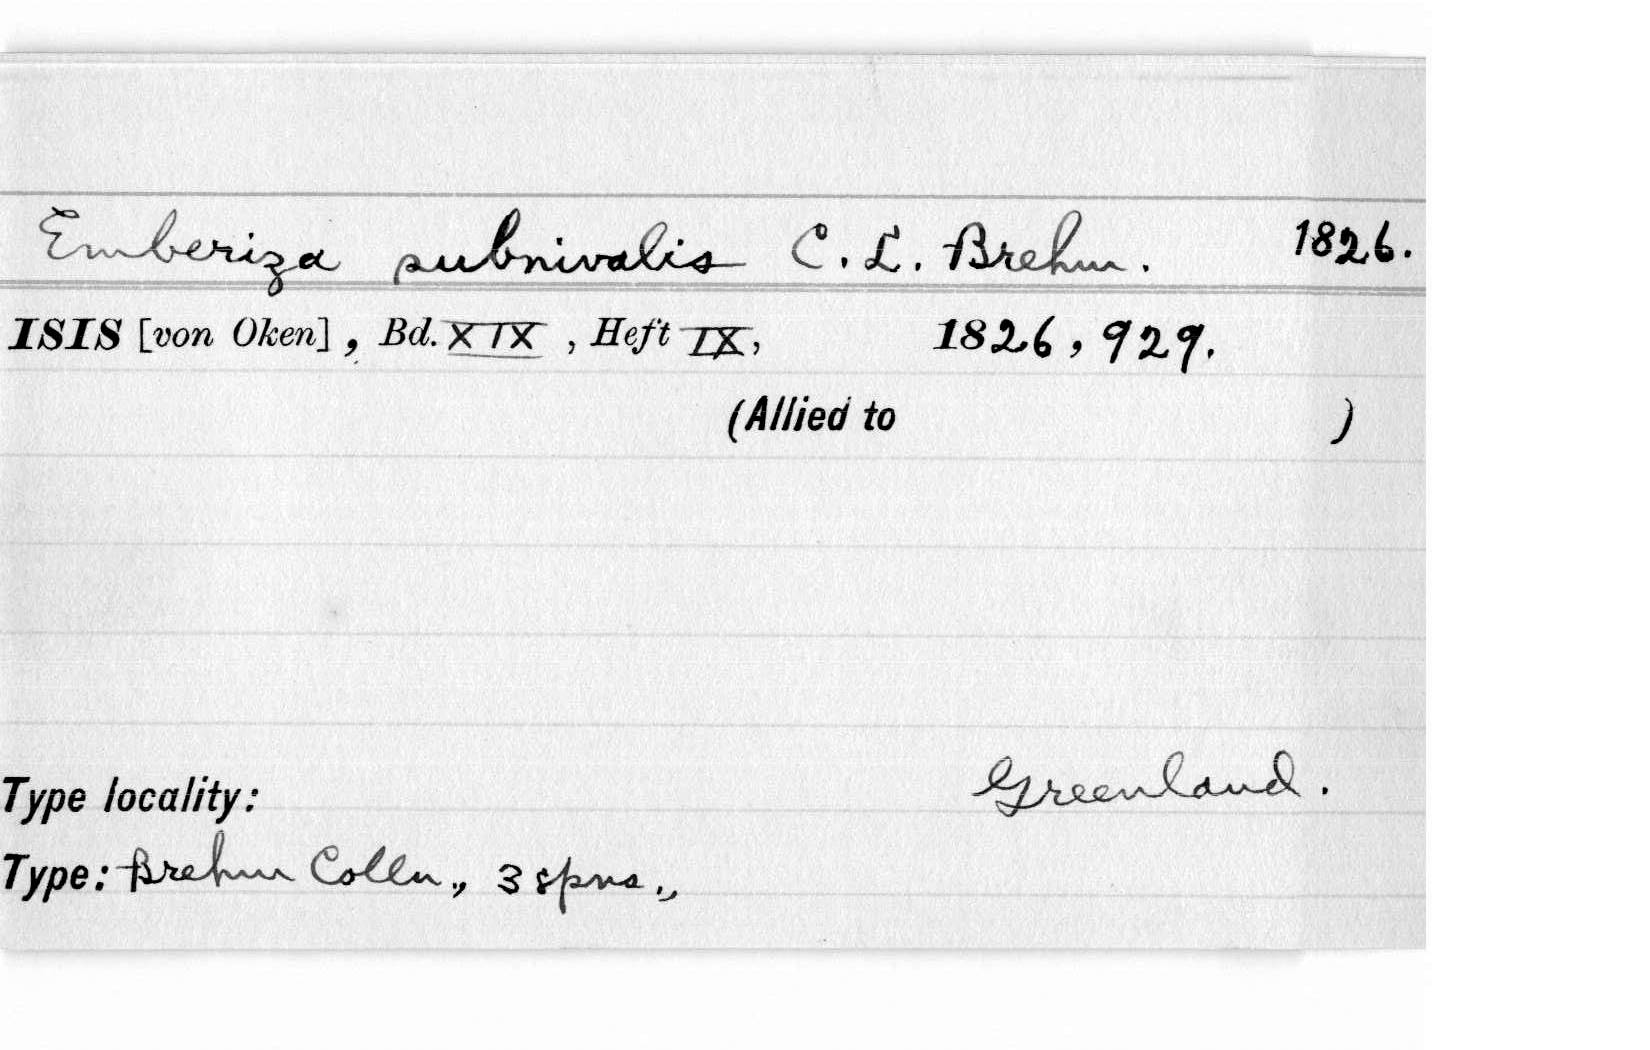 Emberiza subnivalis C. L. Brehm. 1826.
ISIS [von Oken], Bd. XIX, Heft IX, 1826, 929.
(Allied to )
Type locality: Greenland.
Type: Brehm Colln., 3 spns.,